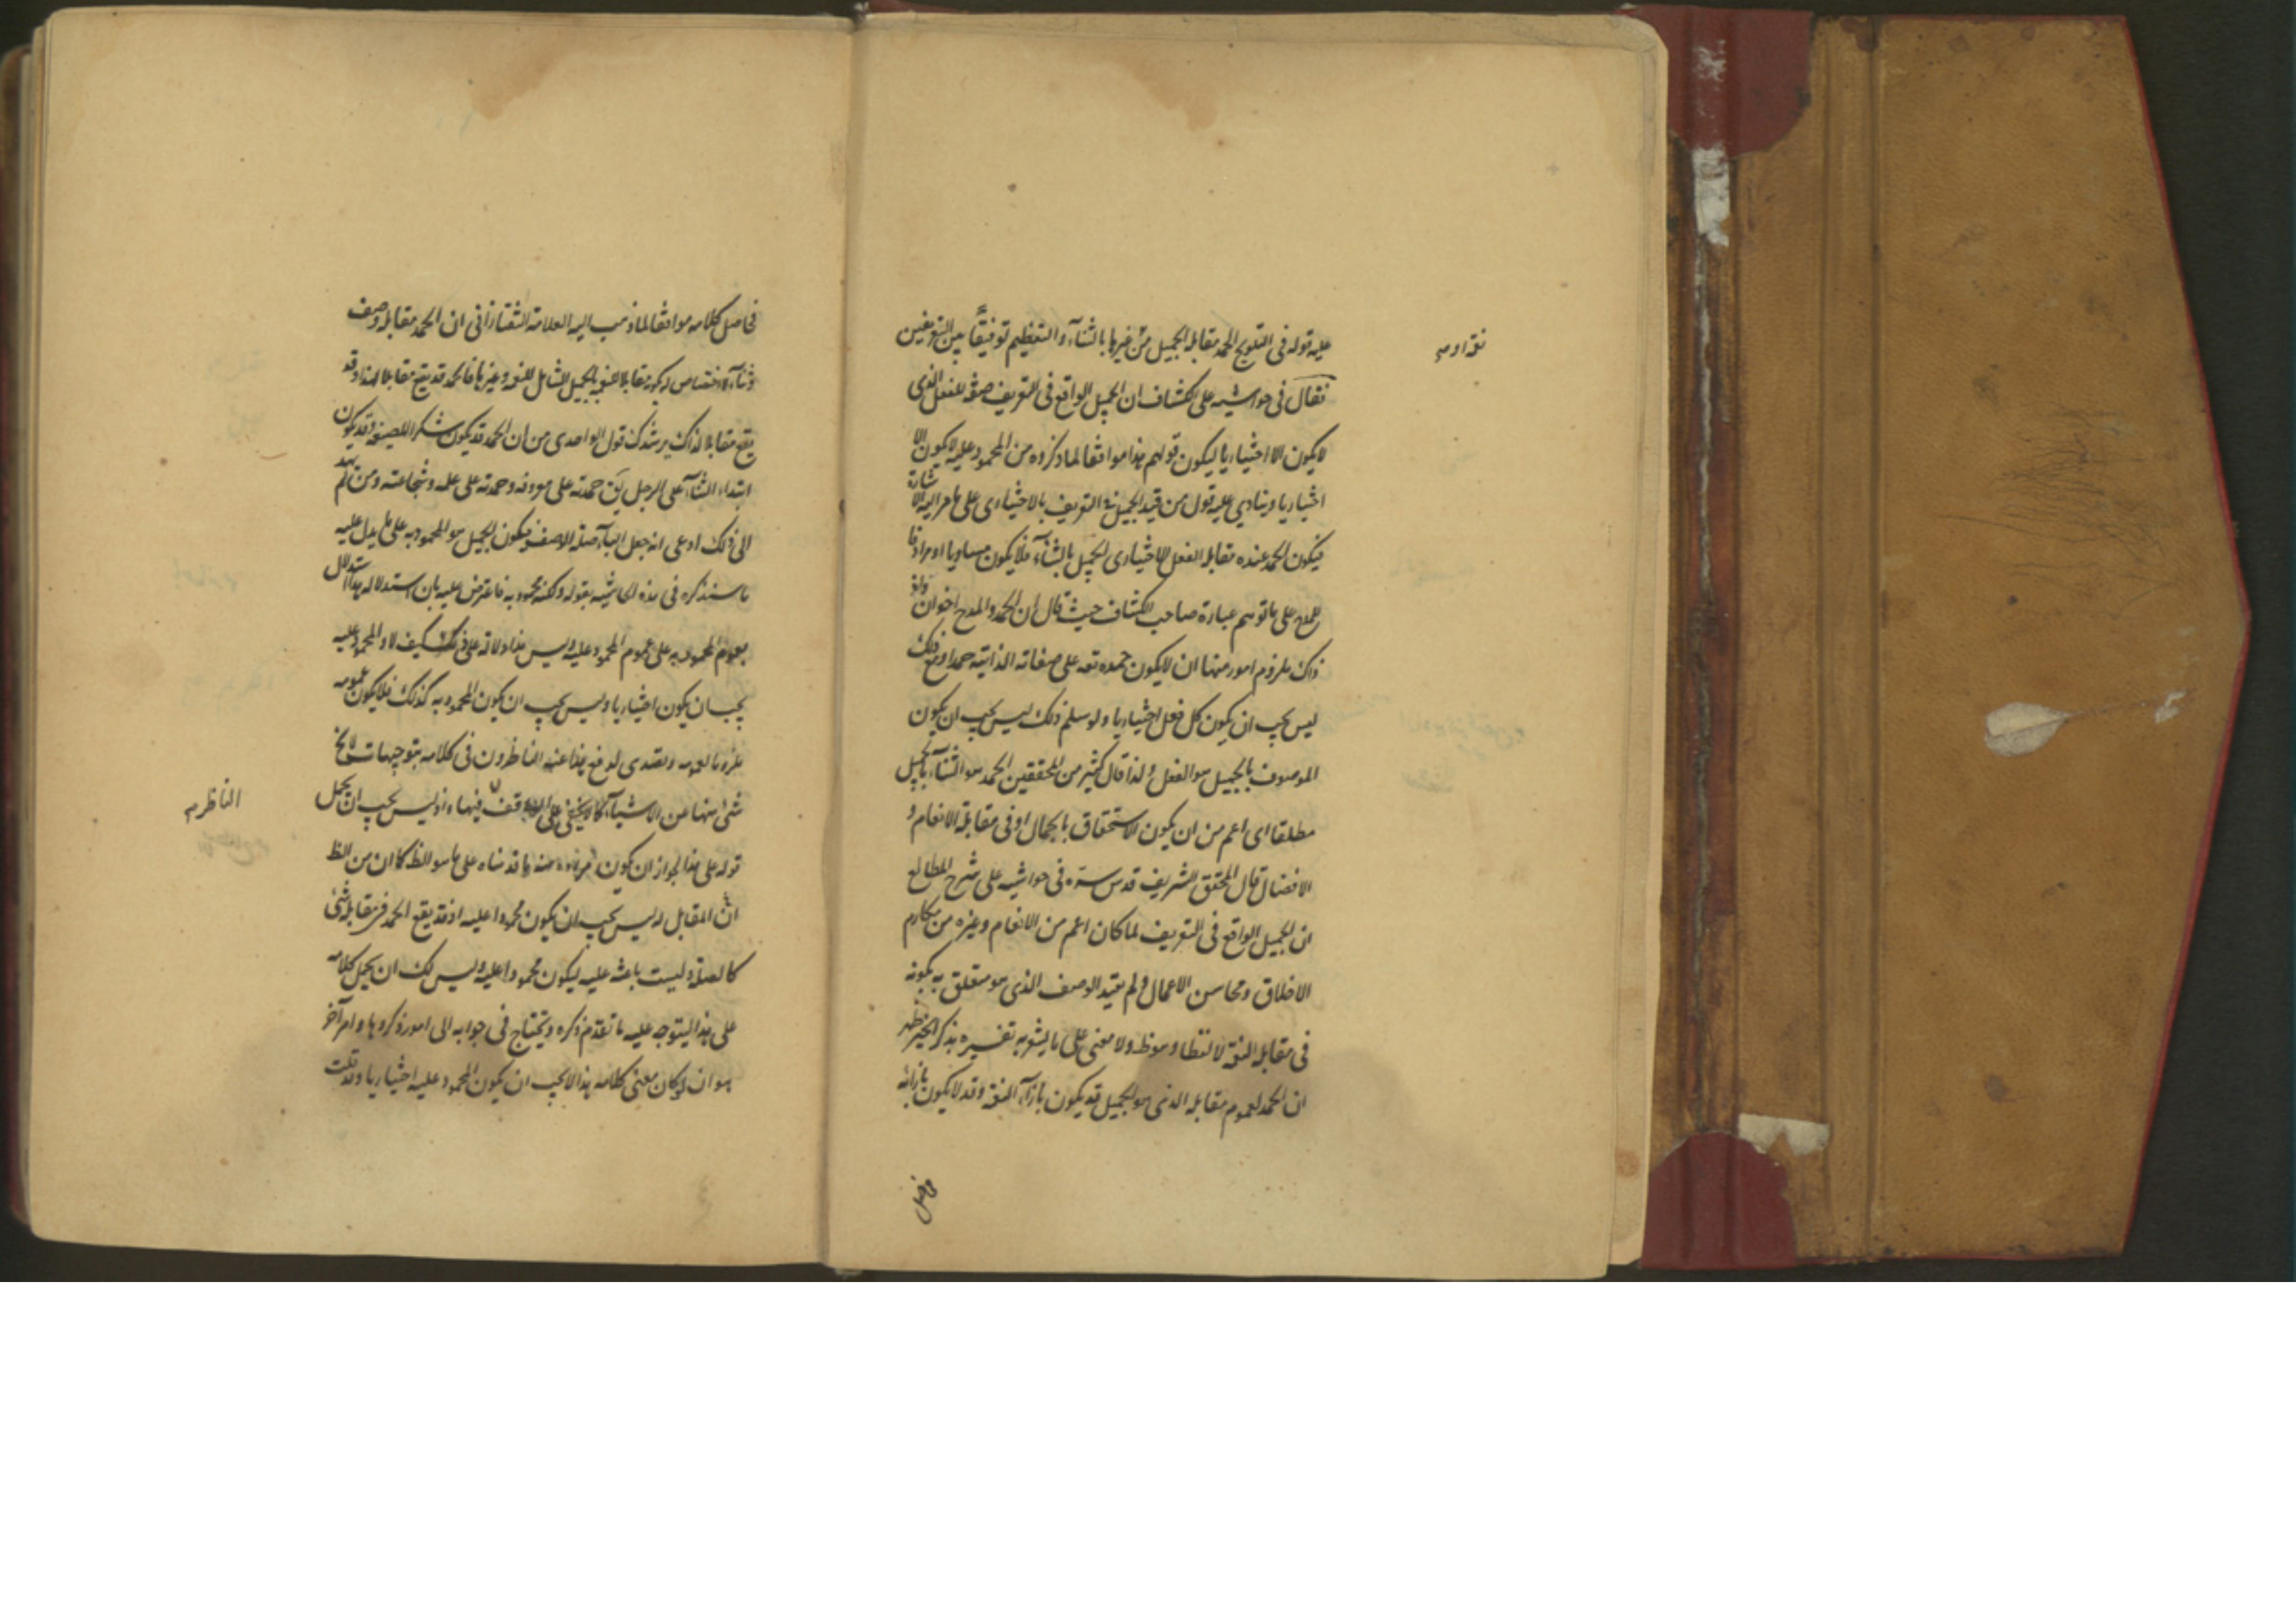 عليه قوله فى التلويح الحمد مقابلة الجميل من غيرها بالثناء والتعظيم توفيقا بين التعريفين
فقال فى حواشيه على الكشاف ان الجميل الواقع فى التعريف صفة للفعل الذى
لا يكون الا اختياريا ليكون قولهم هذا موافقا لما ذكروه من المحمود عليه لا يكون الا
اختياريا وينادي عليه قول من قيد الجميل فى التعريف بالاختيارى على ما مر اليه الاشارة
فيكون الحمد عنده مقابلة الفعل الاختيارى الجميل بالثناء فلا يكون مساويا او مرادفا
للمدح على ما توهم عبارة صاحب الكشاف حيث قال ان الحمد والمدح اخوان
ذاك ملزوم امور منها ان لا يكون حمده تعه على صفاته الذاتية حمدا ومع ذلك
ليس يجب ان يكون كل فعل اختياريا ولو سلم ذلك ليس يجب ان يكون
الموصوف بالجميل هو الفعل ولذا قال كثير من المحققين الحمد هو الثناء بالجميل
مطلقا اى اعم من ان يكون الاستحقاق بالجمال او فى مقابلة الانعام و
الافضال قال المحقق الشريف قدس سره فى حواشيه على شرح المطالع
ان الجميل الواقع فى التعريف لما كان اعم من الانعام وغيره من مكارم
الاخلاق ومحاسن الاعمال ولم يقيد الوصف الذى هو متعلق به بكونه
فى مقابلة النعمة لا لفظا وهو ظ ولا معنى على ما يشعر به تفسيره بذكر الخير ظهر
ان الحمد لعموم مقابله الذى هو الجميل قد يكون بازاء النعمة وقد لا يكون بازائه
فى اصل كلامه موافقا لما ذهب اليه العلامة التفتازانى ان الحمد مقابلة وصف
وثناء لا اختصاص له بكونه مقابلا للجميل الشامل للنعمة وغيرها فالحمد قد يقع مقابلا لهذا وقد
يقع مقابلا لذاك يرشدك قول الواحدى من ان الحمد قد يكون شكرا للصنيعة وقد يكون
ابتداء الثناء على الرجل يق حمدته على معروفه وحمدته على علمه وشجاعته ومن لم
الى ذلك ادعى انه جعل الباء صلة الوصف فيكون الجميل هو المحمود به على ما يدل عليه
ما سنذكره فى هذه الحاشية بقوله ولكنه محمود به فاعترض عليه بان استدلاله هذا استدلال
بعموم المحمود به على عموم المحمود عليه وليس هذا دلالة على ذلك كيف لا والمحمود عليه
يجب ان يكون اختياريا وليس يجب ان يكون المحمود به كذلك فلا يكون عمومه
ملزوما لعمومه وتصدى لدفع هذا عنه الناظرون فى كلامه بتوجيهات لا يخ
شئ منها عن الاشياء كما لا يخفى على الواقف فيها اذ ليس يجب ان يحمل
قوله على هذا لجواز ان يكون مراده منه ما قدمناه على ما هو الظ كما ان من الظ
ان المقابل له ليس يجب ان يكون محمودا عليه اذ قد يقع الحمد فى مقابلة شئ
كالصلة وليست باعثة عليه ليكون محمودا عليه وليس لك ان يحمل كلامه
على هذا ليتوجه عليه ما تقدم ذكره ويحتاج فى جوابه الى امور ذكروها وامر آخر
هو ان لو كان معنى كلامه هذا لا يجب ان يكون المحمود عليه اختياريا وقد ثبت
الناظر